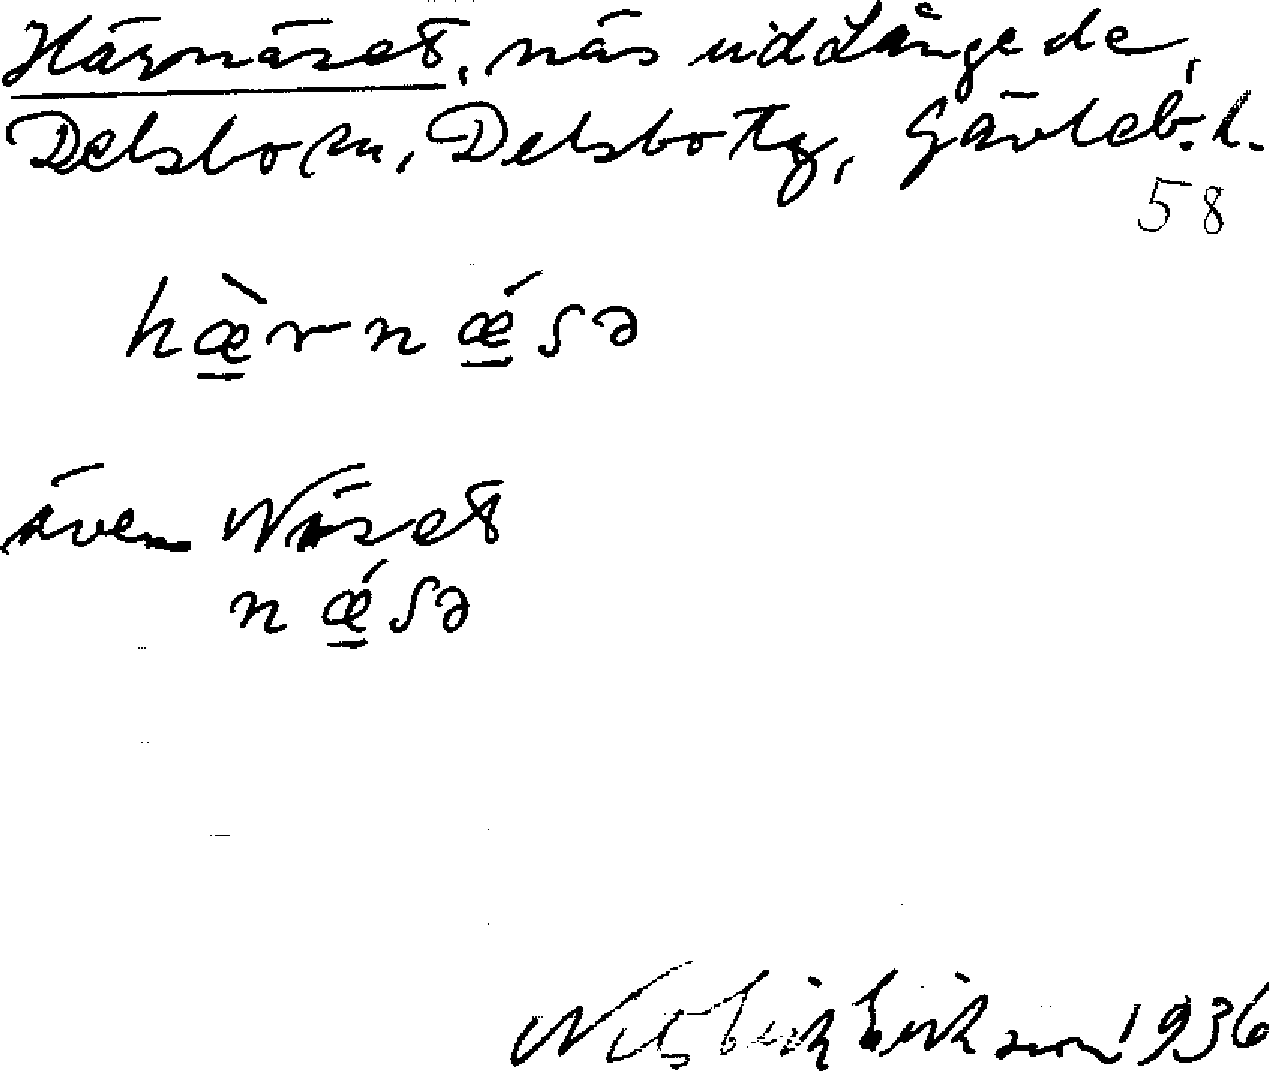 Härnäset, näs vid Långede,
Delsbo sn, Delsbo tg, Gävleb. l.
58
hæ̲̀rnǽ̲sə
även Näset
nǽ̲sə
Nils Erik Eriksson 1936